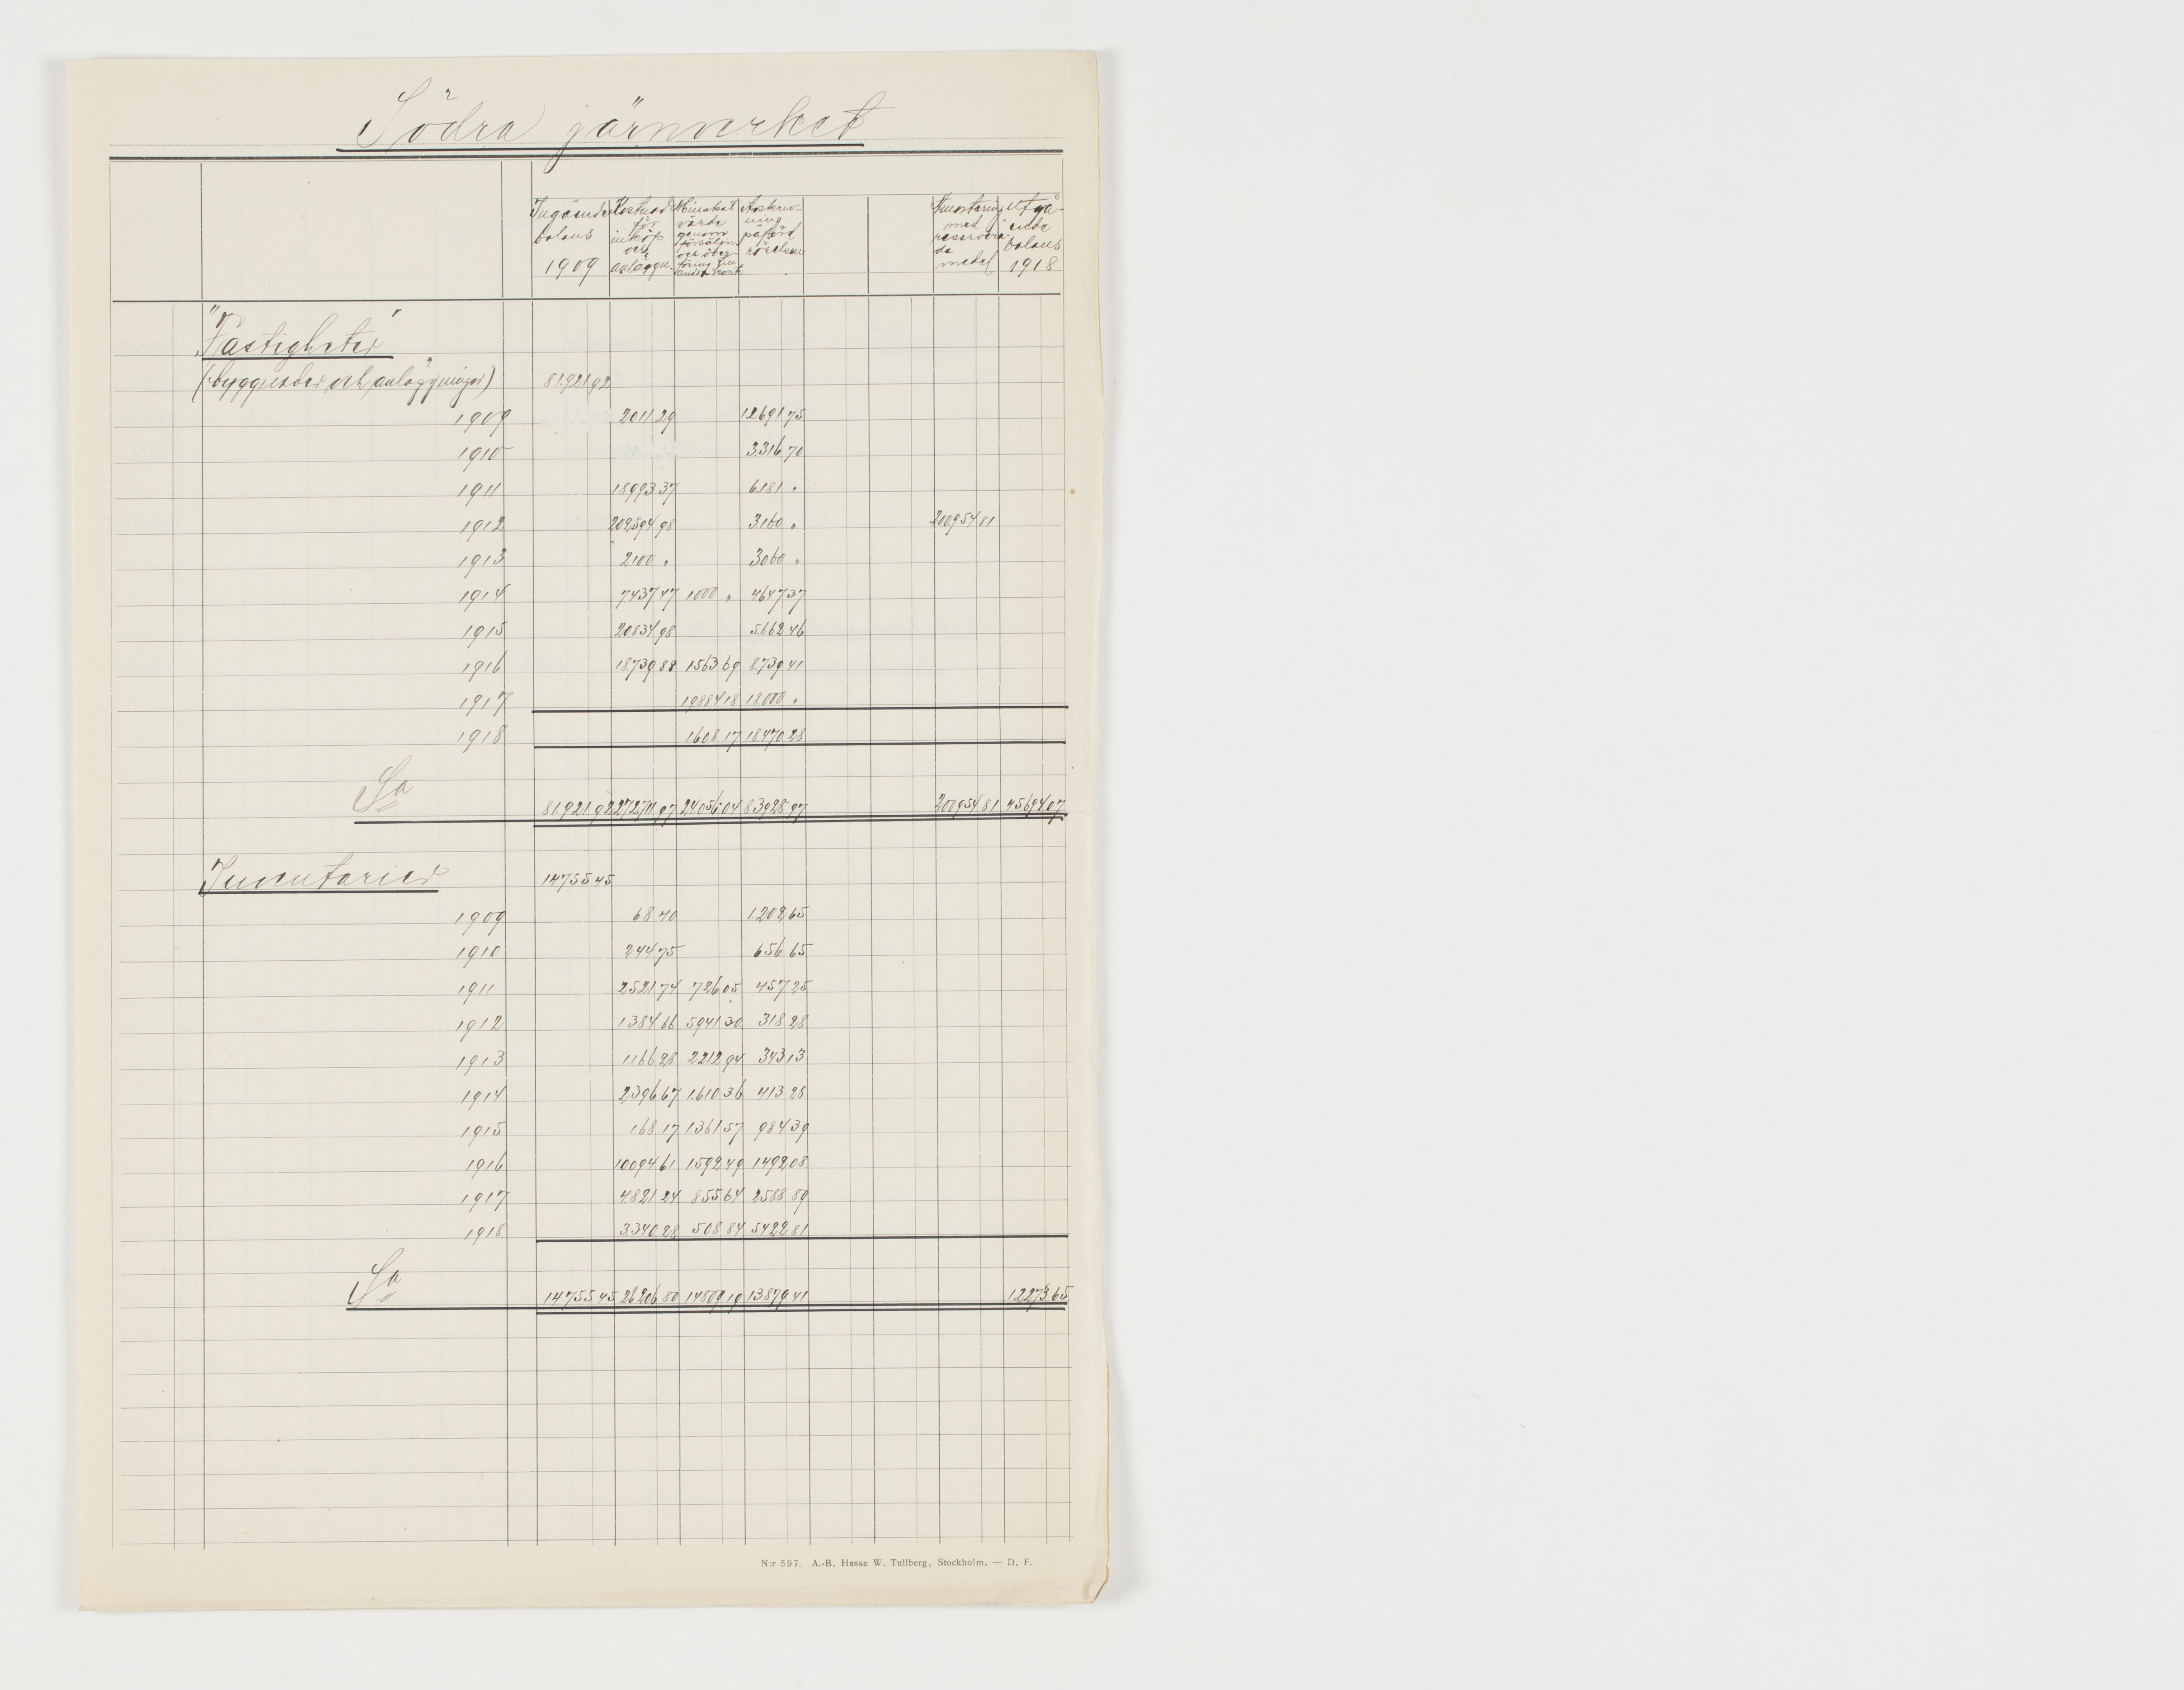 Södra järnverket
Ingående balans 1909
Kostnad för inköp och anläggn.
Minskat värde genom försäljn. och över- föring till andra kont
Avskriv- ning påförd rörelsen
Amortering med reservera- de medel
Utgå- ende balans 1918
"Fastigheter"
(byggnader och anläggningar) 81.921 92
1909 2011 29 12691 75
1910 3.316 70
1911 18993 37 6.181 "
1912 202594 98 3160 " 200954 81
1913 2100 " 3060 "
1914 7437 47 1000 " 4647 37
1915 20834 98 5.662 46
1916 18.739 88 1563 69 8.739 41
1917 19884 18 18.000 "
1918 1.608 17 18470 28
Sa 81.921 92 272711 97 24.056 04 83928 97 200954 81 45694 07
Inventarier 14755 45
1909 68 40 1.202 65
1910 244 75 656 65
1911 2521 74 726 05 457 25
1912 1384 66 5941 30 318 28
1913 1166 28 2212 94 343 13
1914 2396 67 1.610 36 413 28
1915 168 17 1.361 57 984 39
1916 10094 61 1592 49 1492 08
1917 4821 24 855 64 2588 89
1918 3.340 28 508 84 5422 81
Sa 14755 45 26206 80 14809 19 13879 41 12273 65
N:r 597. A.-B. Hasse W. Tullberg, Stockholm. — D. F.